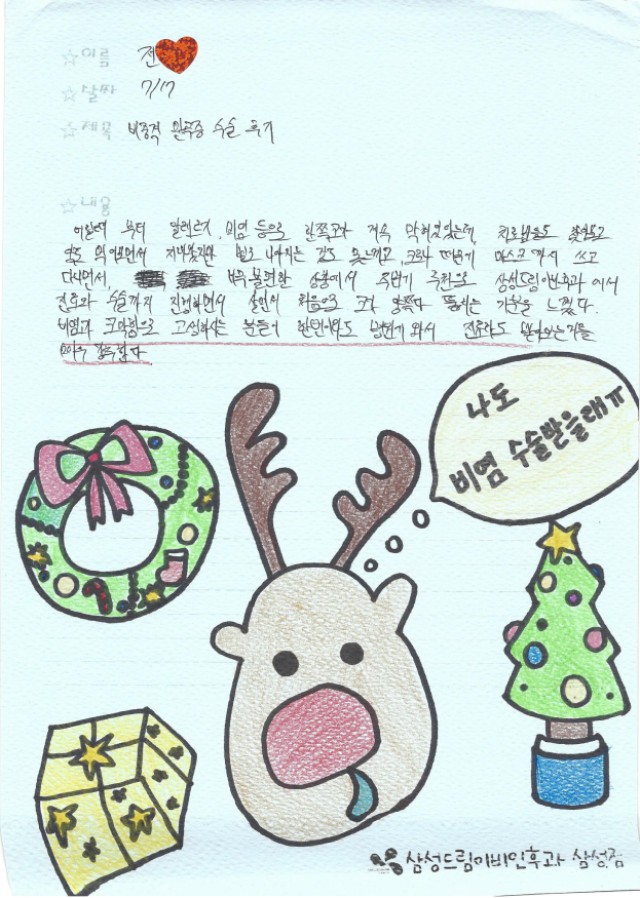 ☆이름 전
☆날짜 7/17
☆제목 비중격 만곡증 수술 후기
☆내용
어릴때 부터 알레르기, 비염 등으로 한쪽코가 계속 막혀있었는데, 치료방법도
약도 지내왔지만 별로 나아지는 못느끼고, 코와 때문에 마스크까지 쓰고
다니면서, 매우 불편한 상황에서 주변기 추천으로 삼성드림이비인후과에서
진료와 수술까지 진행하면서 살면서 처음으로 코가 양쪽다 뚫리는 기분을 느꼈다.
비염과 코막힘으로 고생하시는 분들이 한번이라도 병원에 와서 진료라도 받아보는것을
나도
비염 수술받을래ㅠ
삼성드림이비인후과 삼성점